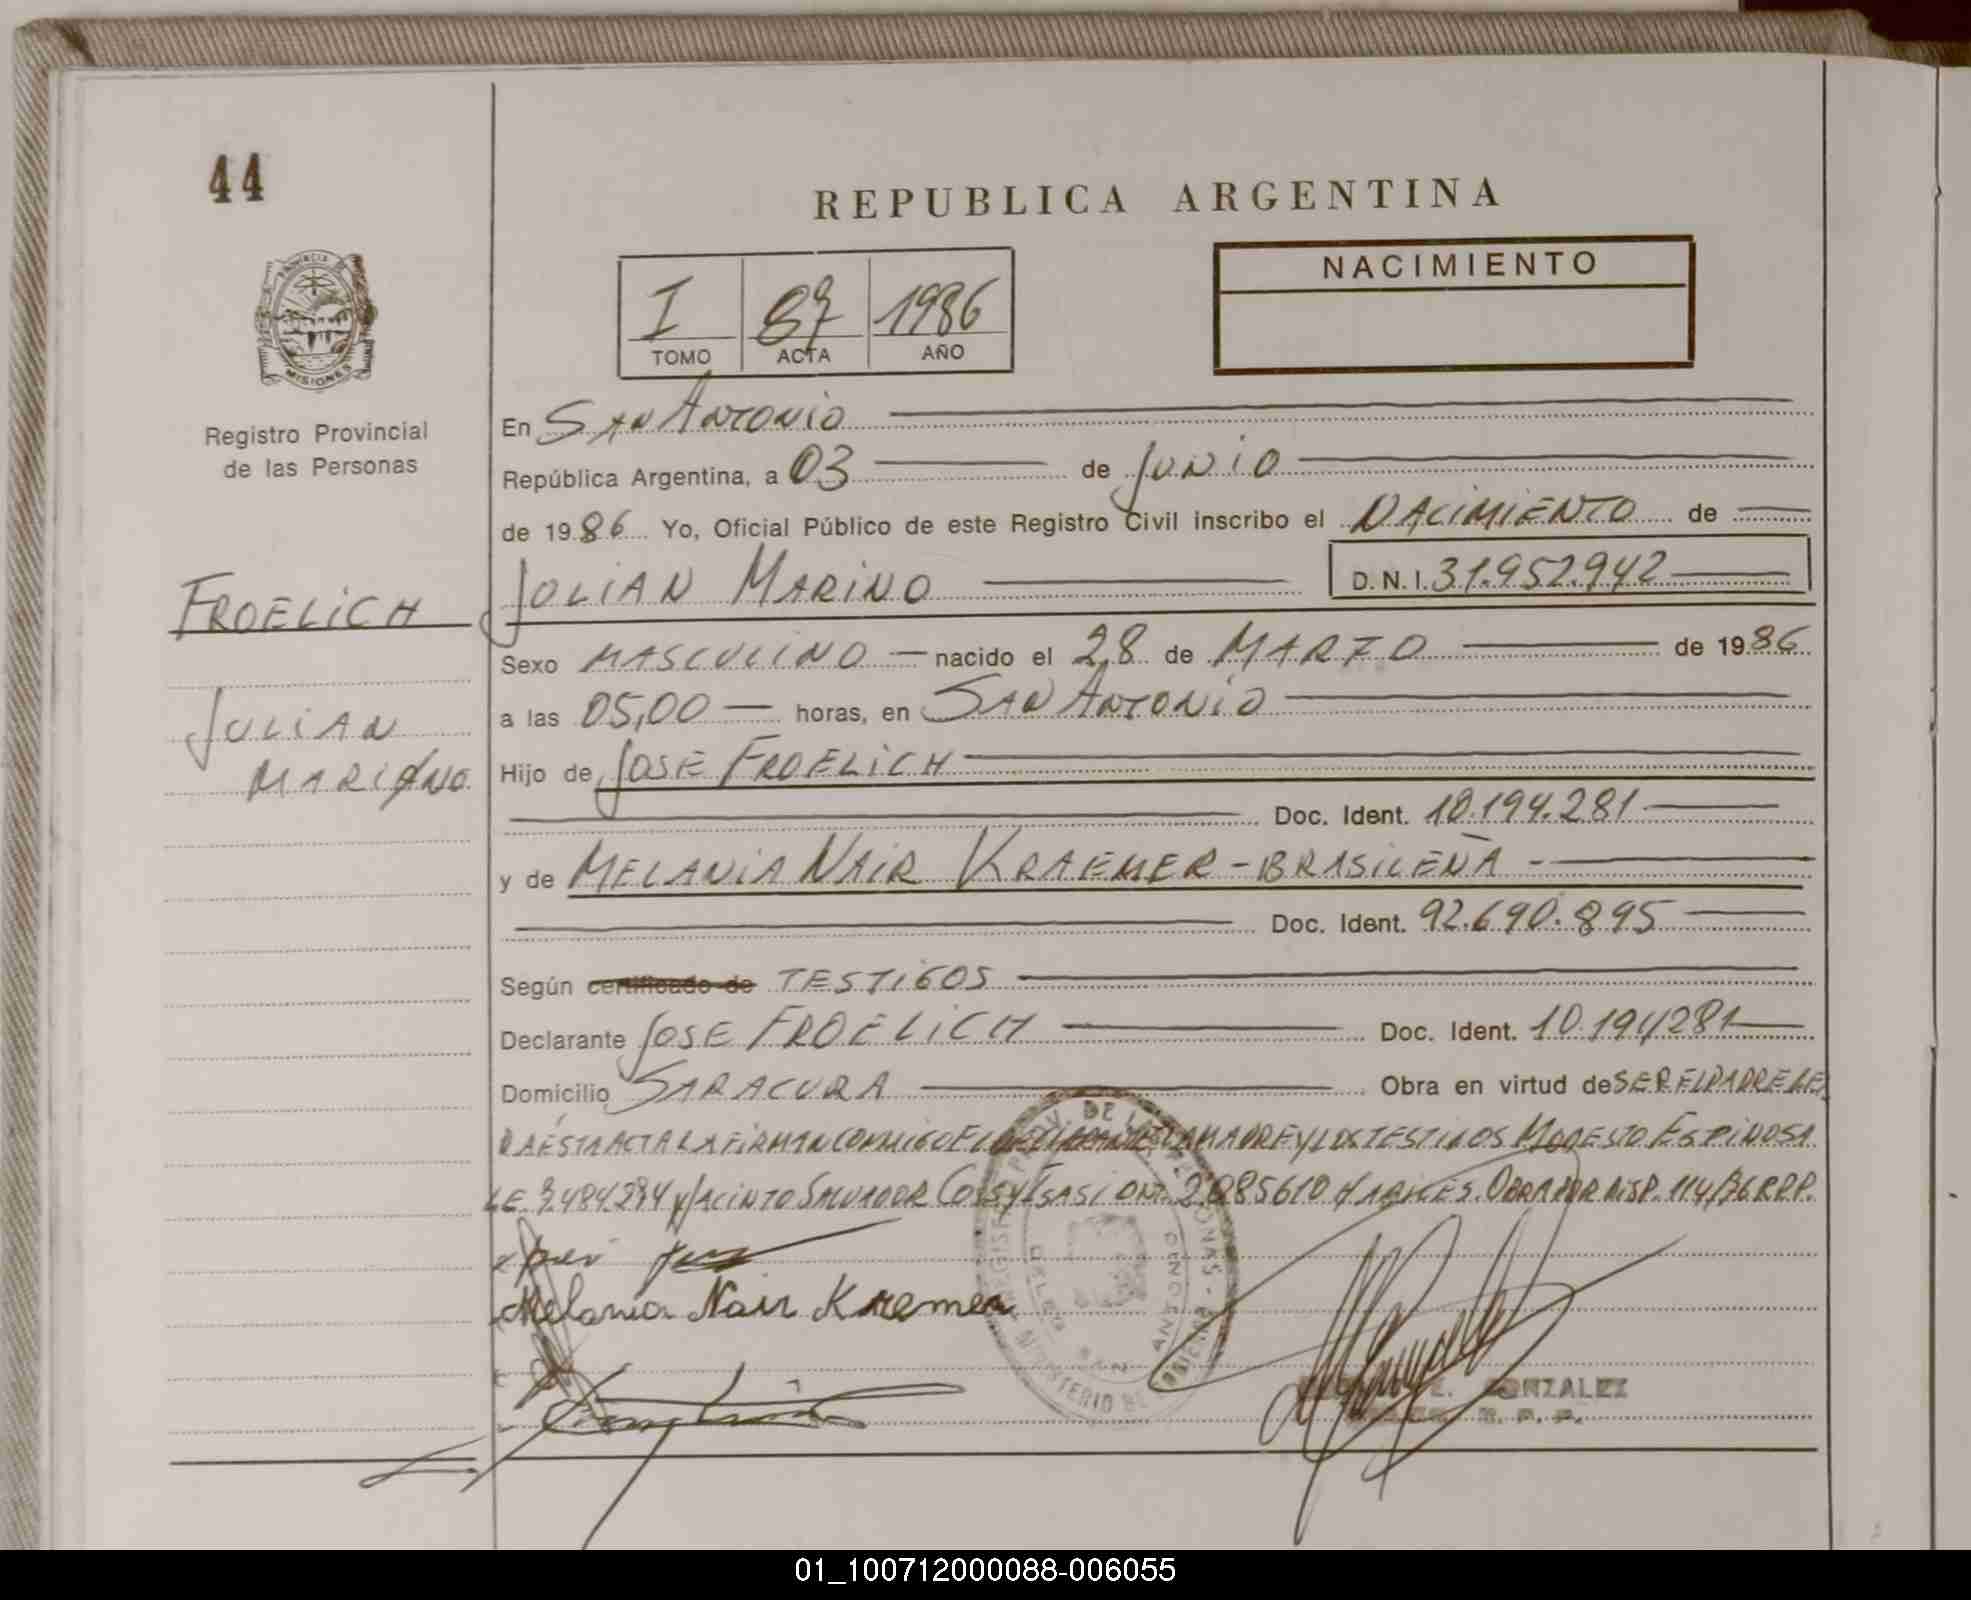 44
REPUBLICA ARGENTINA
PROVINCIA DE
MISIONES
I 87 1986
TOMO ACTA AÑO
NACIMIENTO
Registro Provincial
de las Personas
En SAN ANTONIO
República Argentina, a 03 de JUNIO
de 1986 Yo, Oficial Público de este Registro Civil inscribo el NACIMIENTO de
FROELICH
JULIAN MARINO D.N.I. 31.952.942
Sexo MASCULINO nacido el 28 de MARZO de 1986
JULIAN
MARINO
a las 05,00 horas, en SAN ANTONIO
Hijo de JOSE FROELICH
Doc. Ident. 10.194.281
y de MELANIA NAIR KRAEMER - BRASILEÑA -
Doc. Ident. 92.690.895
Según certificado de TESTIGOS
Declarante JOSE FROELICH Doc. Ident. 10.194281
Domicilio SARACURA Obra en virtud de SER EL PADRE LE
DA ÉSTA ACTA LA FIRMAN CONMIGO EL DECLARANTE LA MADRE Y LOS TESTIGOS MODESTO ESPINOSA
LE JACINTO SALVADOR OBRA POR DISP. 114/86 R.P.P.
Melania Nair Kremer
GONZALEZ
R. P. P.
01_100712000088-006055